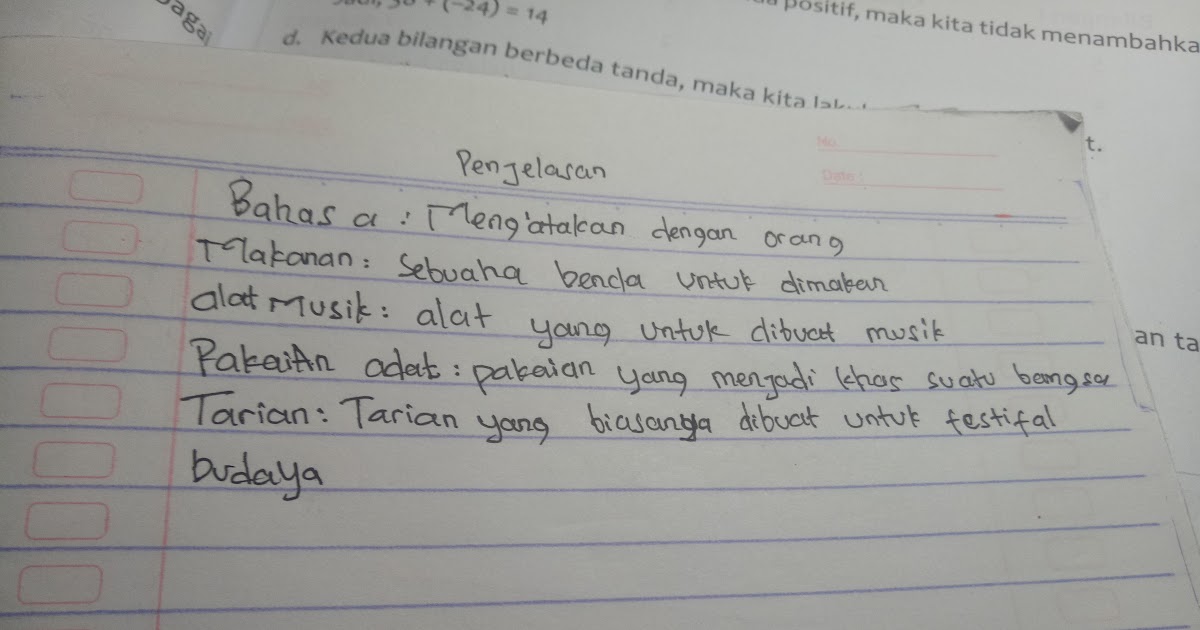 + (-24) = 14
positif, maka kita tidak menambahka
d. Kedua bilangan berbeda tanda, maka kita
t.
No
Date :
Penjelasan
Bahasa : Meng'atakan dengan orang
Makanan : Sebuaha benda untuk dimakan
alat Musik : alat yang untuk dibuat musik
PakaiAn adat : pakaian yang menjadi khas suatu bangsa
an ta
Tarian : Tarian yang biasanya dibuat untuk festifal
budaya